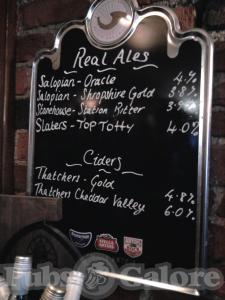 Real Ales
Salopian - Oracle 4%
Salopian - Shropshire Gold 3.8%
Stonehouse - Station Bitter 3.9%
Slaters - Top Totty 4.0%
Ciders
Thatchers - Gold 4.8%
Thatchers Cheddar Valley 6.0%
STELLA ARTOIS
Pubs Galore